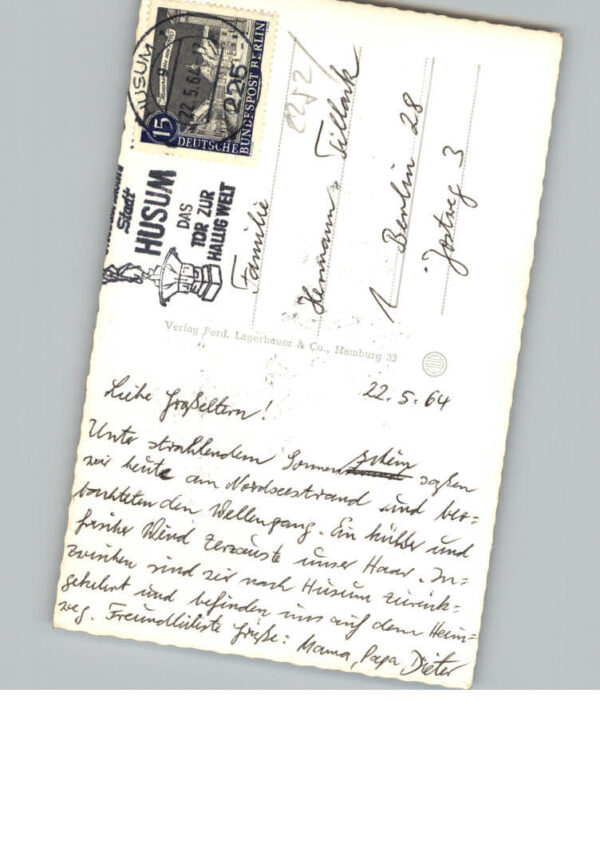 HUSUM
22.5.64
225
15
DEUTSCHE
BUNDESPOST BERLIN
Stadt
HUSUM
DAS
TOR ZUR
HALLIG WELT
2252/
Familie
Hermann Tillack
1 Berlin 28
Jostweg 3
Verlag Ferd. Lagerbauer & Co., Hamburg 33
22.5.64
Liebe Großeltern!
Unter strahlendem Sonnenschein saßen
wir heute am Nordseestrand und beo-
bachteten den Wellengang. Ein kühler und
frischer Wind zerzauste unser Haar. In-
zwischen sind wir nach Husum zurück-
gekehrt und befinden uns auf dem Heim-
weg. Freundlichste Grüße: Mama, Papa, Dieter